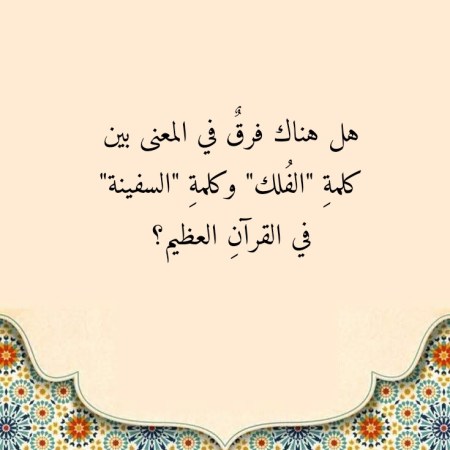 هل هناك فرقٌ في المعنى بين
كلمةِ "الفُلك" وكلمةِ "السفينة"
في القرآنِ العظيم؟